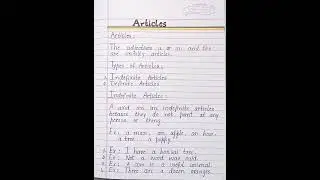 Articles
Articles:
The adjectives a or an and the
are usually articles.
Types of Articles:
1. Indefinite Articles
2. Definite Articles
Indefinite Articles:
A and an are indefinite articles
because they do not point at any
person or thing.
Ex: a man, an apple, an hour,
a tree, a puppy.
Ex: I have a bonsai tree.
Ex: Not a word was said.
Ex: A cow is a useful animal.
Ex: There are a dozen mangoes.